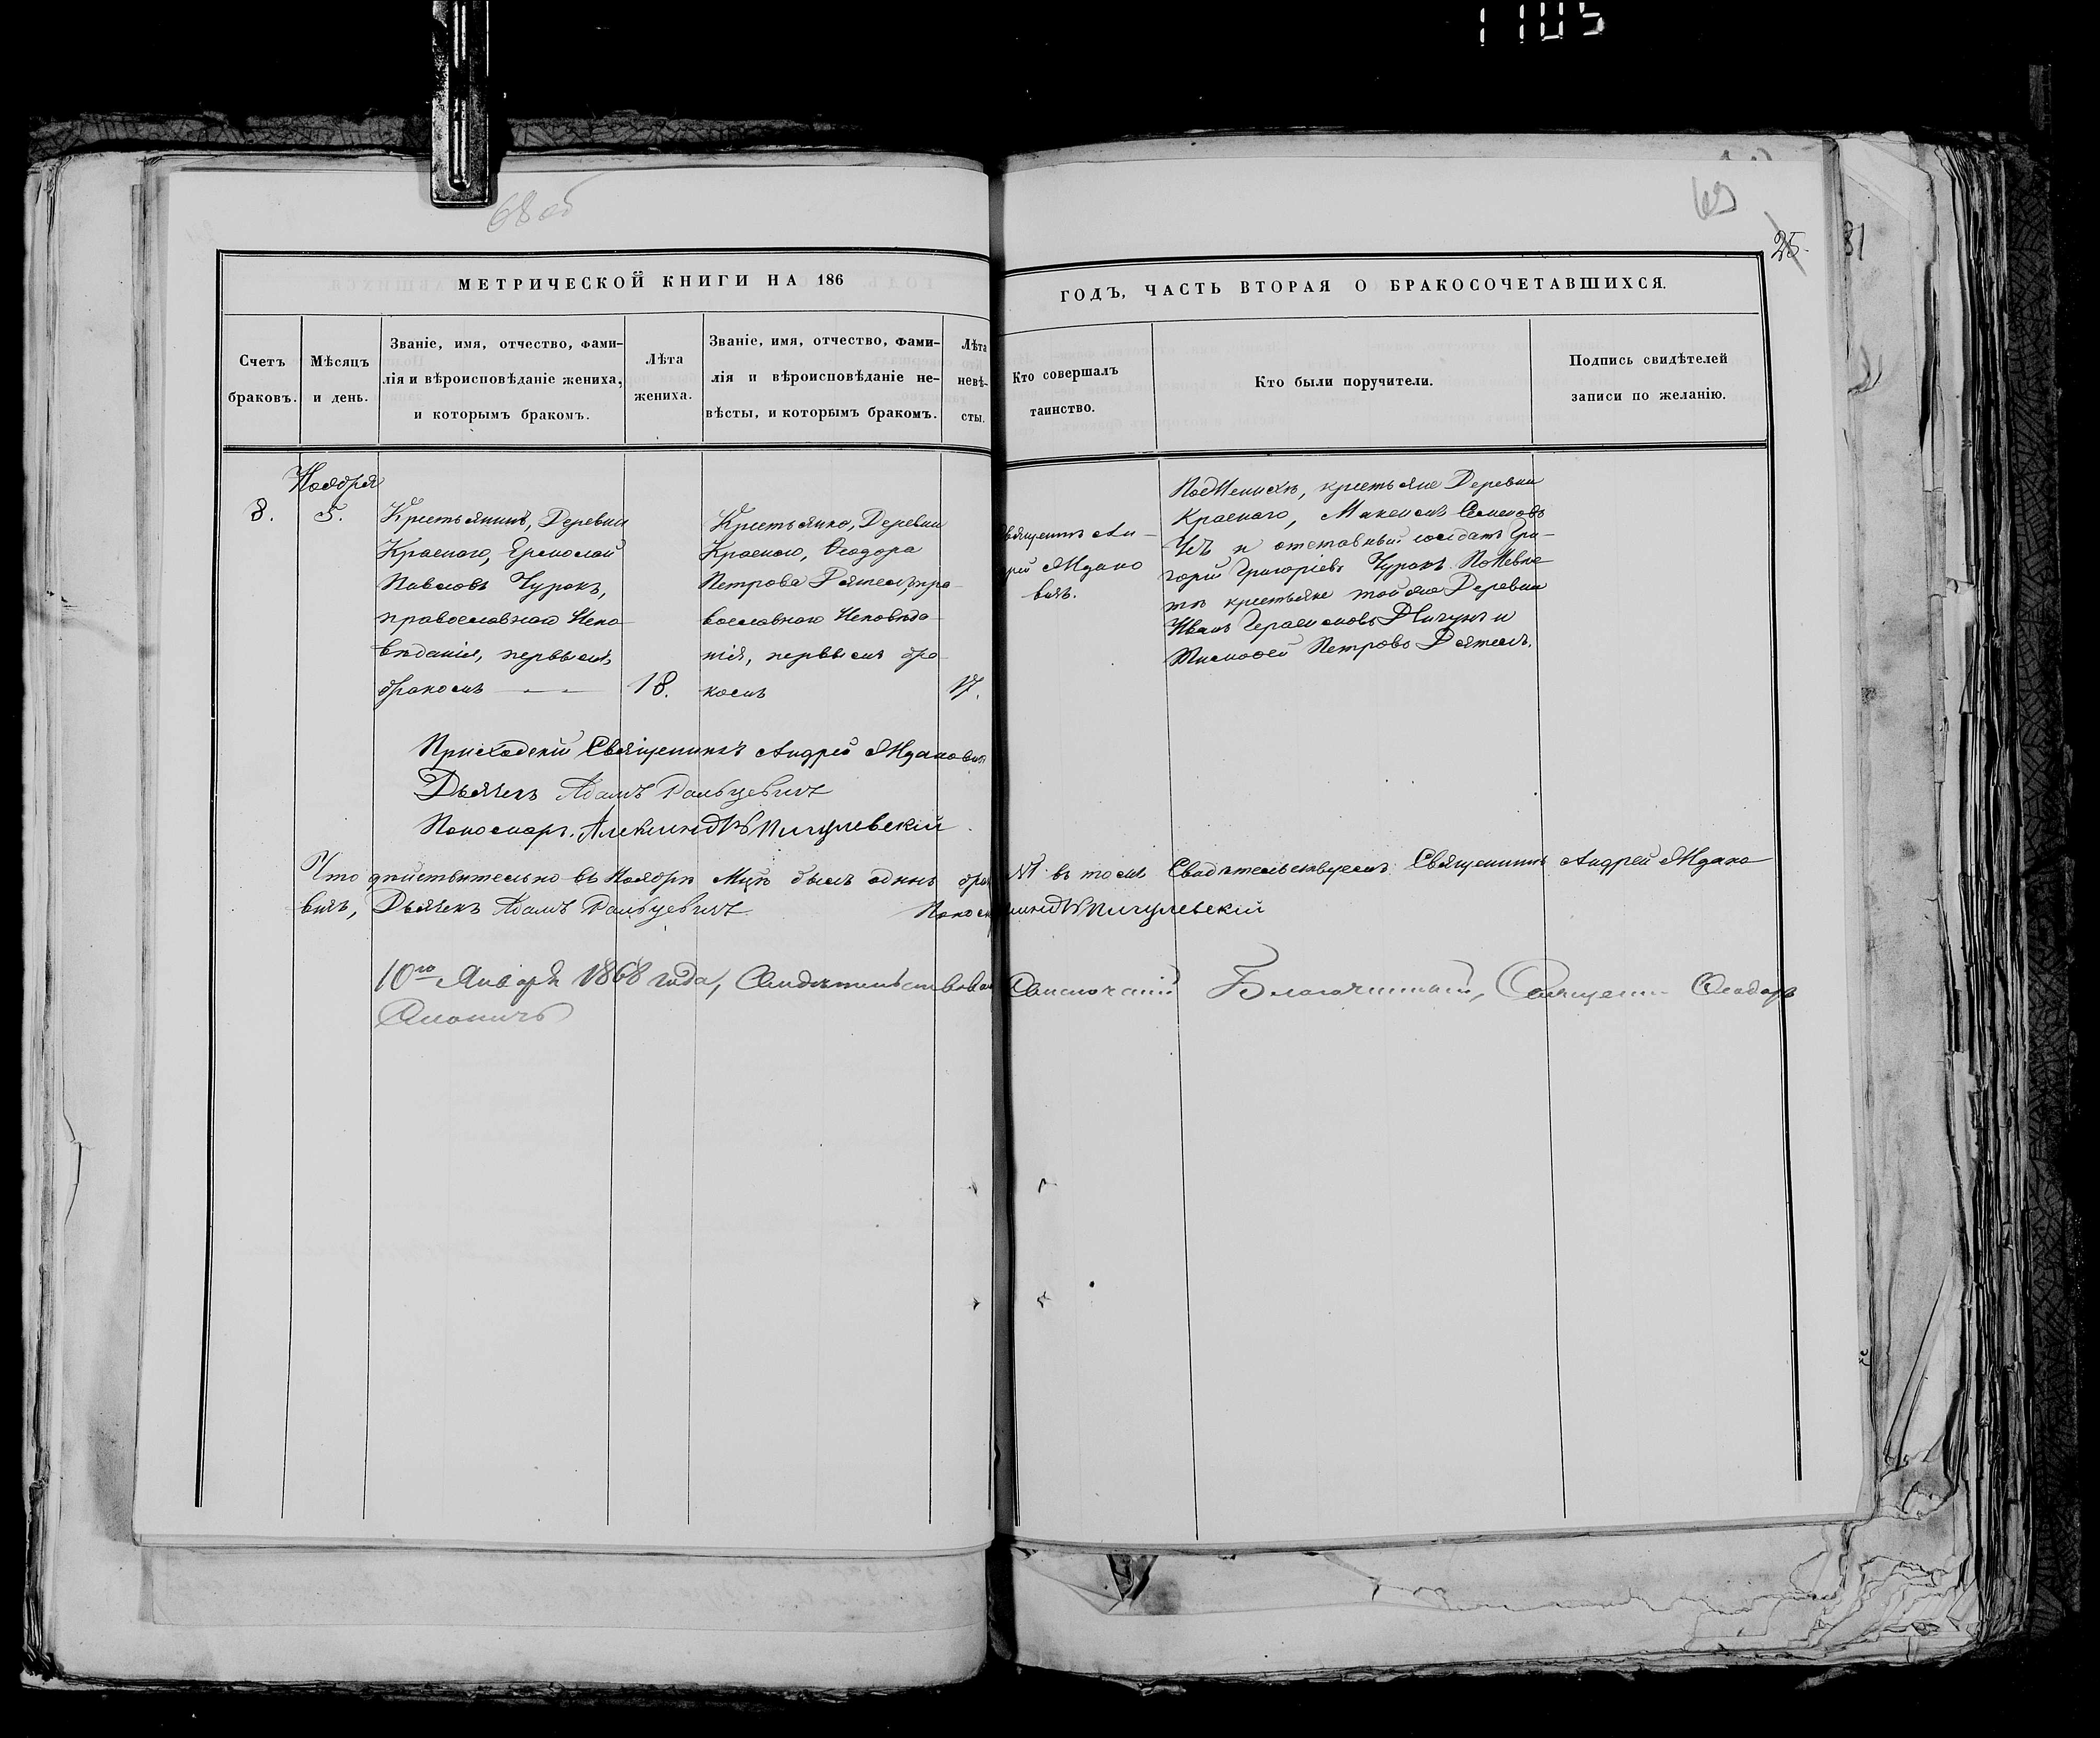 1105
68 об
69
25.
81
МЕТРИЧЕСКОЙ КНИГИ НА 186
ГОДЪ, ЧАСТЬ ВТОРАЯ О БРАКОСОЧЕТАВШИХСЯ.
Счетъ
браковъ.
Мѣсяцъ
и день.
Званіе, имя, отчество, фами-
лія и вѣроисповѣданіе жениха,
и которымъ бракомъ.
Лѣта
жениха.
Званіе, имя, отчество, фами-
лія и вѣроисповѣданіе не-
вѣсты, и которымъ бракомъ.
Лѣта
невѣ-
сты.
Кто совершалъ
таинство.
Кто были поручители.
Подпись свидѣтелей
записи по желанію.
8.
Ноября
5.
Крестьянинъ, Деревни
Краснаго, Ермолай
Павловъ Чуракъ,
православнаго Испо-
вѣданія, первымъ
бракомъ
18.
Крестьянка, Деревни
Краснаго, Ѳеодора
Петрова Дятелъ, пра-
вославнаго Исповѣда-
нія, первымъ бра-
комъ
17.
Священникъ Ан-
дрей Ждано
вичъ.
По Женихѣ, крестьяне Деревни
Краснаго, Максимъ Семеновъ
и отставный солдатъ Гри-
горій Григоріевъ Чуракъ. По Невѣс-
тѣ крестьяне той же Деревни
Иванъ Герасимовъ и
Тимофей Петровъ Дятелъ.
Приходскій Священникъ Андрей Ждановичъ
Дьячекъ Адамъ
Пономарь. Александръ Пигулевскій
Что дѣйствительно въ Ноябрѣ Мцѣ былъ одинъ бракъ №1 въ томъ Свидѣтельствуемъ Священникъ Андрей Ждано
вичъ, Дьячекъ Адамъ Пономарь Александръ Пигулевскій
10го Января 1868 года, Свидѣтельствовалъ Благочинный, Священникъ Ѳеодоръ